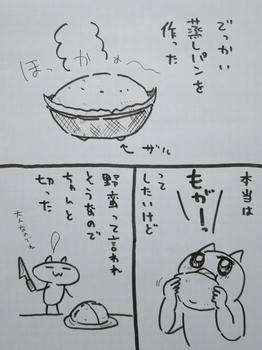 でっかい
蒸しパンを
作った
ほっ
かぁ〜
ザル
本当は
もがーっ
って
したいけど
野蛮って言われ
そうなので
ちゃんと
切った
大人なのでね